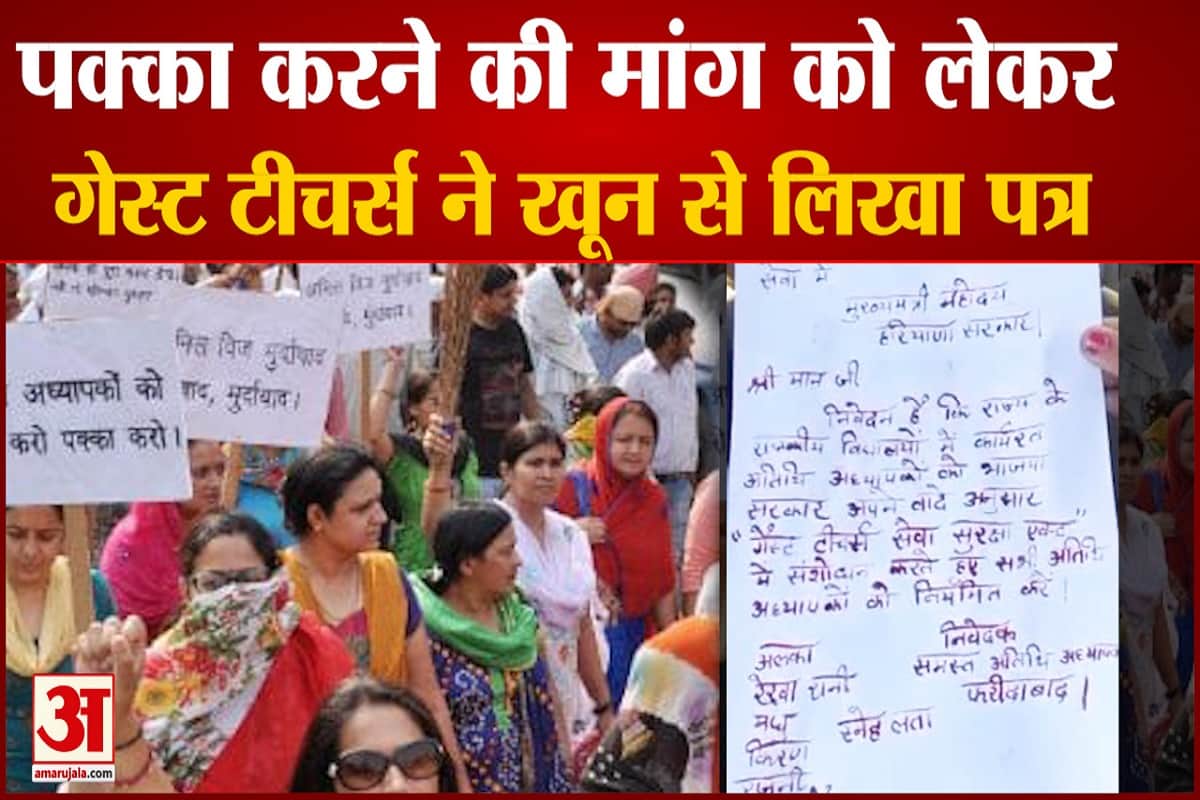 पक्का करने की मांग को लेकर
गेस्ट टीचर्स ने खून से लिखा पत्र
मुर्दाबाद
, मुर्दाबाद।
निल विज मुर्दाबाद
बाद, मुर्दाबाद।
अध्यापकों को
करो पक्का करो।
सेवा में
मुख्यमंत्री महोदय
हरियाणा सरकार।
श्री मान जी
निवेदन है कि राज्य के
राजकीय विद्यालयों में कार्यरत
अतिथि अध्यापकों को भाजपा
सरकार अपने वादे अनुसार
"गेस्ट टीचर्स सेवा सुरक्षा एक्ट"
में संशोधन करते हुए सभी अतिथि
अध्यापकों को नियमित करें।
निवेदक
समस्त अतिथि अध्यापक
फरीदाबाद।
अलका
रेखा रानी
स्नेह लता
किरण
अ
amarujala.com